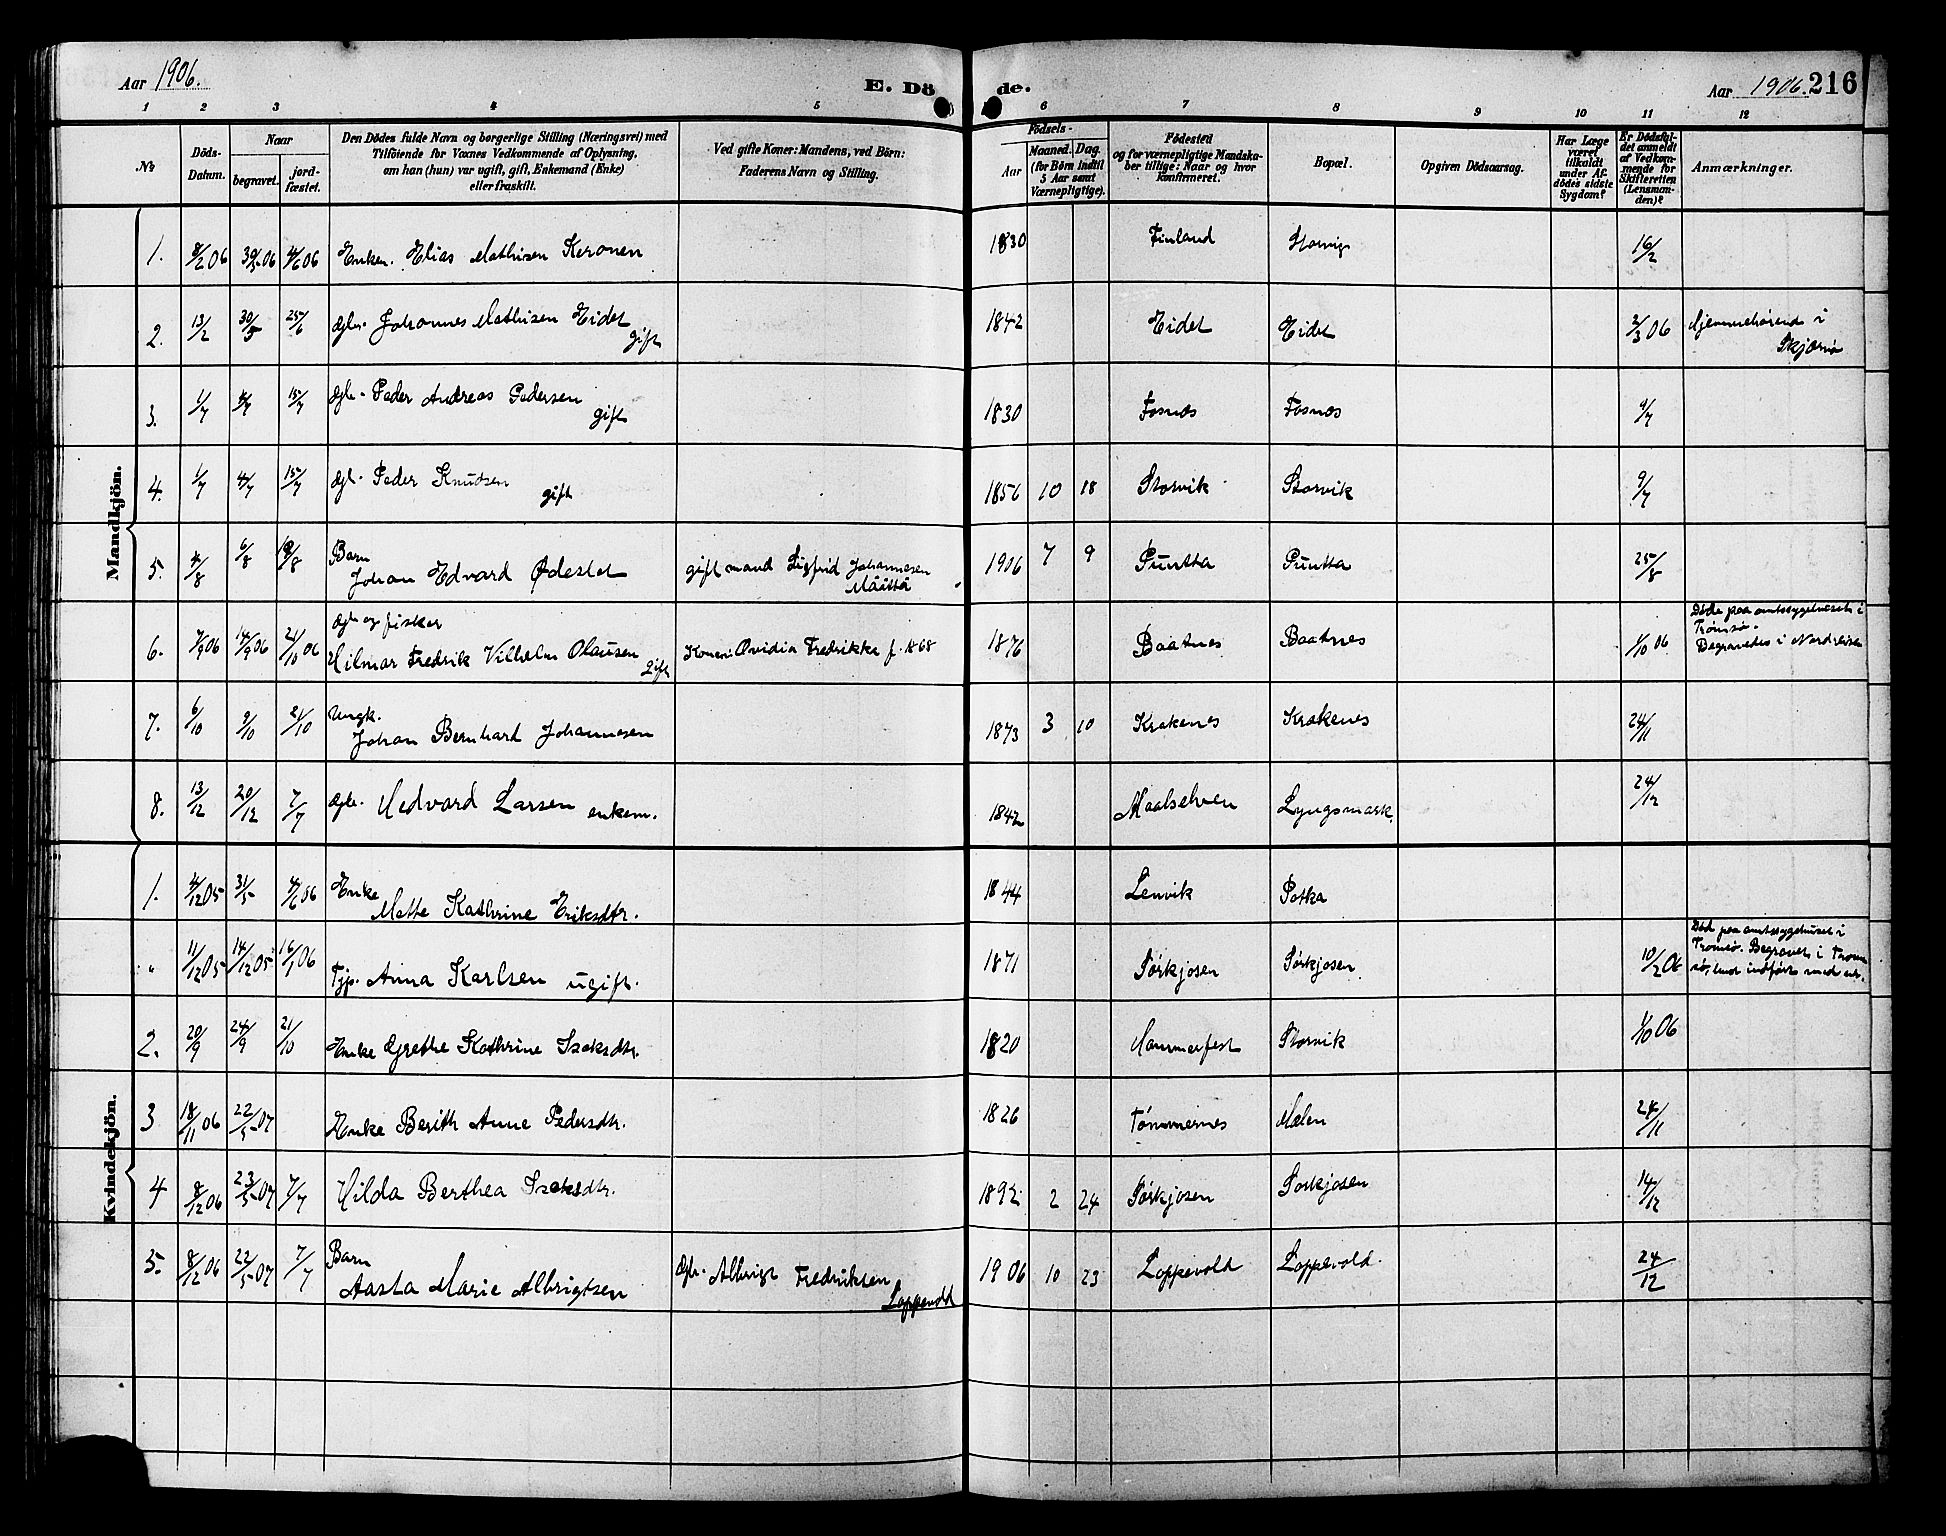 Aar 1906.
E. Döde.
Aar 1906. 216
1 2 3 4 5 6 7 8 9 10 11 12
No
Döds-Datum.
Naar
begravet.
jord-fæstet.
Den Dödes fulde Navn og borgerlige Stilling (Næringsvei) med
Tilföiende for Voxnes Vedkommende af Oplysning,
om han (hun) var ugift, gift, Enkemand (Enke)
eller fraskilt.
Ved gifte Koner: Mandens, ved Börn:
Faderens Navn og Stilling.
Födsels-
Aar
Maaned. Dag.
(for Börn indtil
5 Aar samt
Værnepligtige).
Födested
og for værnepligtige Mandska-
ber tillige: Naar og hvor
konfirmeret.
Bopæl.
Opgiven Dödsaarsag.
Har Læge
været
tilkaldt
under Af-
dödes sidste
Sygdom?
Er Dödsfal-
det anmeldt
af Vedkom-
mende for
Skifteretten
(Lensman-
den)?
Anmærkninger.
Mandkjön.
1. 8/2 06 30/5 06 4/6 06 Enkem. Elias Mathisen Keronen 1830 Finland Storvig 16/2
2. 13/2 30/5 25/6 Gbr. Johannes Mathisen Eidet gift 1842 Eidet Eidet 2/3 06 Hjemmehörend i
Skjærvø
3. 1/7 4/7 15/7 Gbr. Peder Andreas Pedersen gift 1830 Fosnæs Fosnæs 9/7
4. 1/7 4/7 15/7 Gbr. Peder Knudsen gift 1856 10 18 Storvik Storvik 9/7
5. 4/8 6/8 19/8 Barn
Johan Edvard Ødeslet gift mand Sigfrid Johannesen
Määttä 1906 7 9 Puntta Puntta 25/8
6. 7/9 06 14/9 06 21/10 06 Gbr og fisker
Hilmar Fredrik Vilhelm Olausen Gift Kone: Ovidia Fredrikka f. 1868 1876 Baatnes Baatnes 1/10 06 Døde paa amtssygehuset i
Tromsø.
Begravedes i Nordreisen
7. 6/10 9/10 21/10 Ungk.
Johan Bernhard Johannesen 1873 3 10 Krakenes Krakenes 24/11
8. 13/12 20/12 7/7 Gbr. Hedvard Larsen enkem. 1842 Maalselven Lyngsmark. 24/12
Kvindekjön.
1. 4/12 05 31/5 4/6 06 Enke
Mette Kathrine Eriksdtr. 1844 Lenvik Potka
" 11/12 05 14/12 05 16/1 06 Tjp. Anna Karlsen ugift. 1871 Sørkjosen Sørkjosen 10/2 06 Død paa amtssygehuset i
Tromsø. Begravet i Trom
sø,
2. 20/9 24/9 21/10 Enke Grethe Kathrine Isaksdtr. 1820 Hammerfest Storvik 1/10 06
3 18/11 06 22/5 07 Enke Berith Anne Pedersdtr. 1826 Tømmernes Molen 24/11
4 8/12 06 23/5 07 7/7 Hilda Berthea Isaksdtr. 1892 2 24 Sørkjosen Sørkjosen 14/12
5. 8/12 06 22/5 07 7/7 Barn
Aasta Marie Albrigtsen Gbr. Albrigt Fredriksen
Loppevold 1906 10 23 Loppevold Loppevold. 24/12